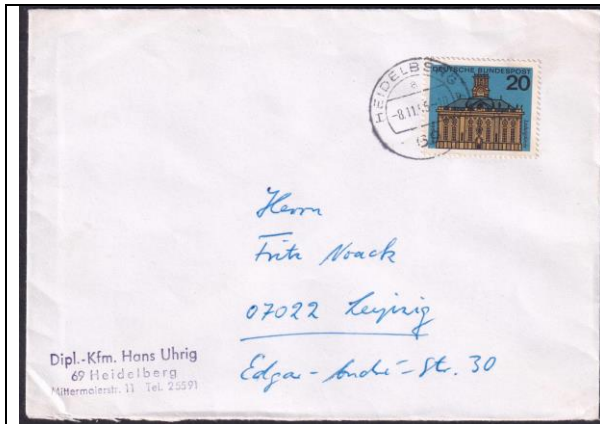 HEIDELBERG
-8.11.65
69
DEUTSCHE BUNDESPOST
20
Herrn
Fritz Noack
07022 Leipzig
Edgar-André-Str. 30
Dipl.-Kfm. Hans Uhrig
69 Heidelberg
Mittermaierstr. 11 Tel. 25591